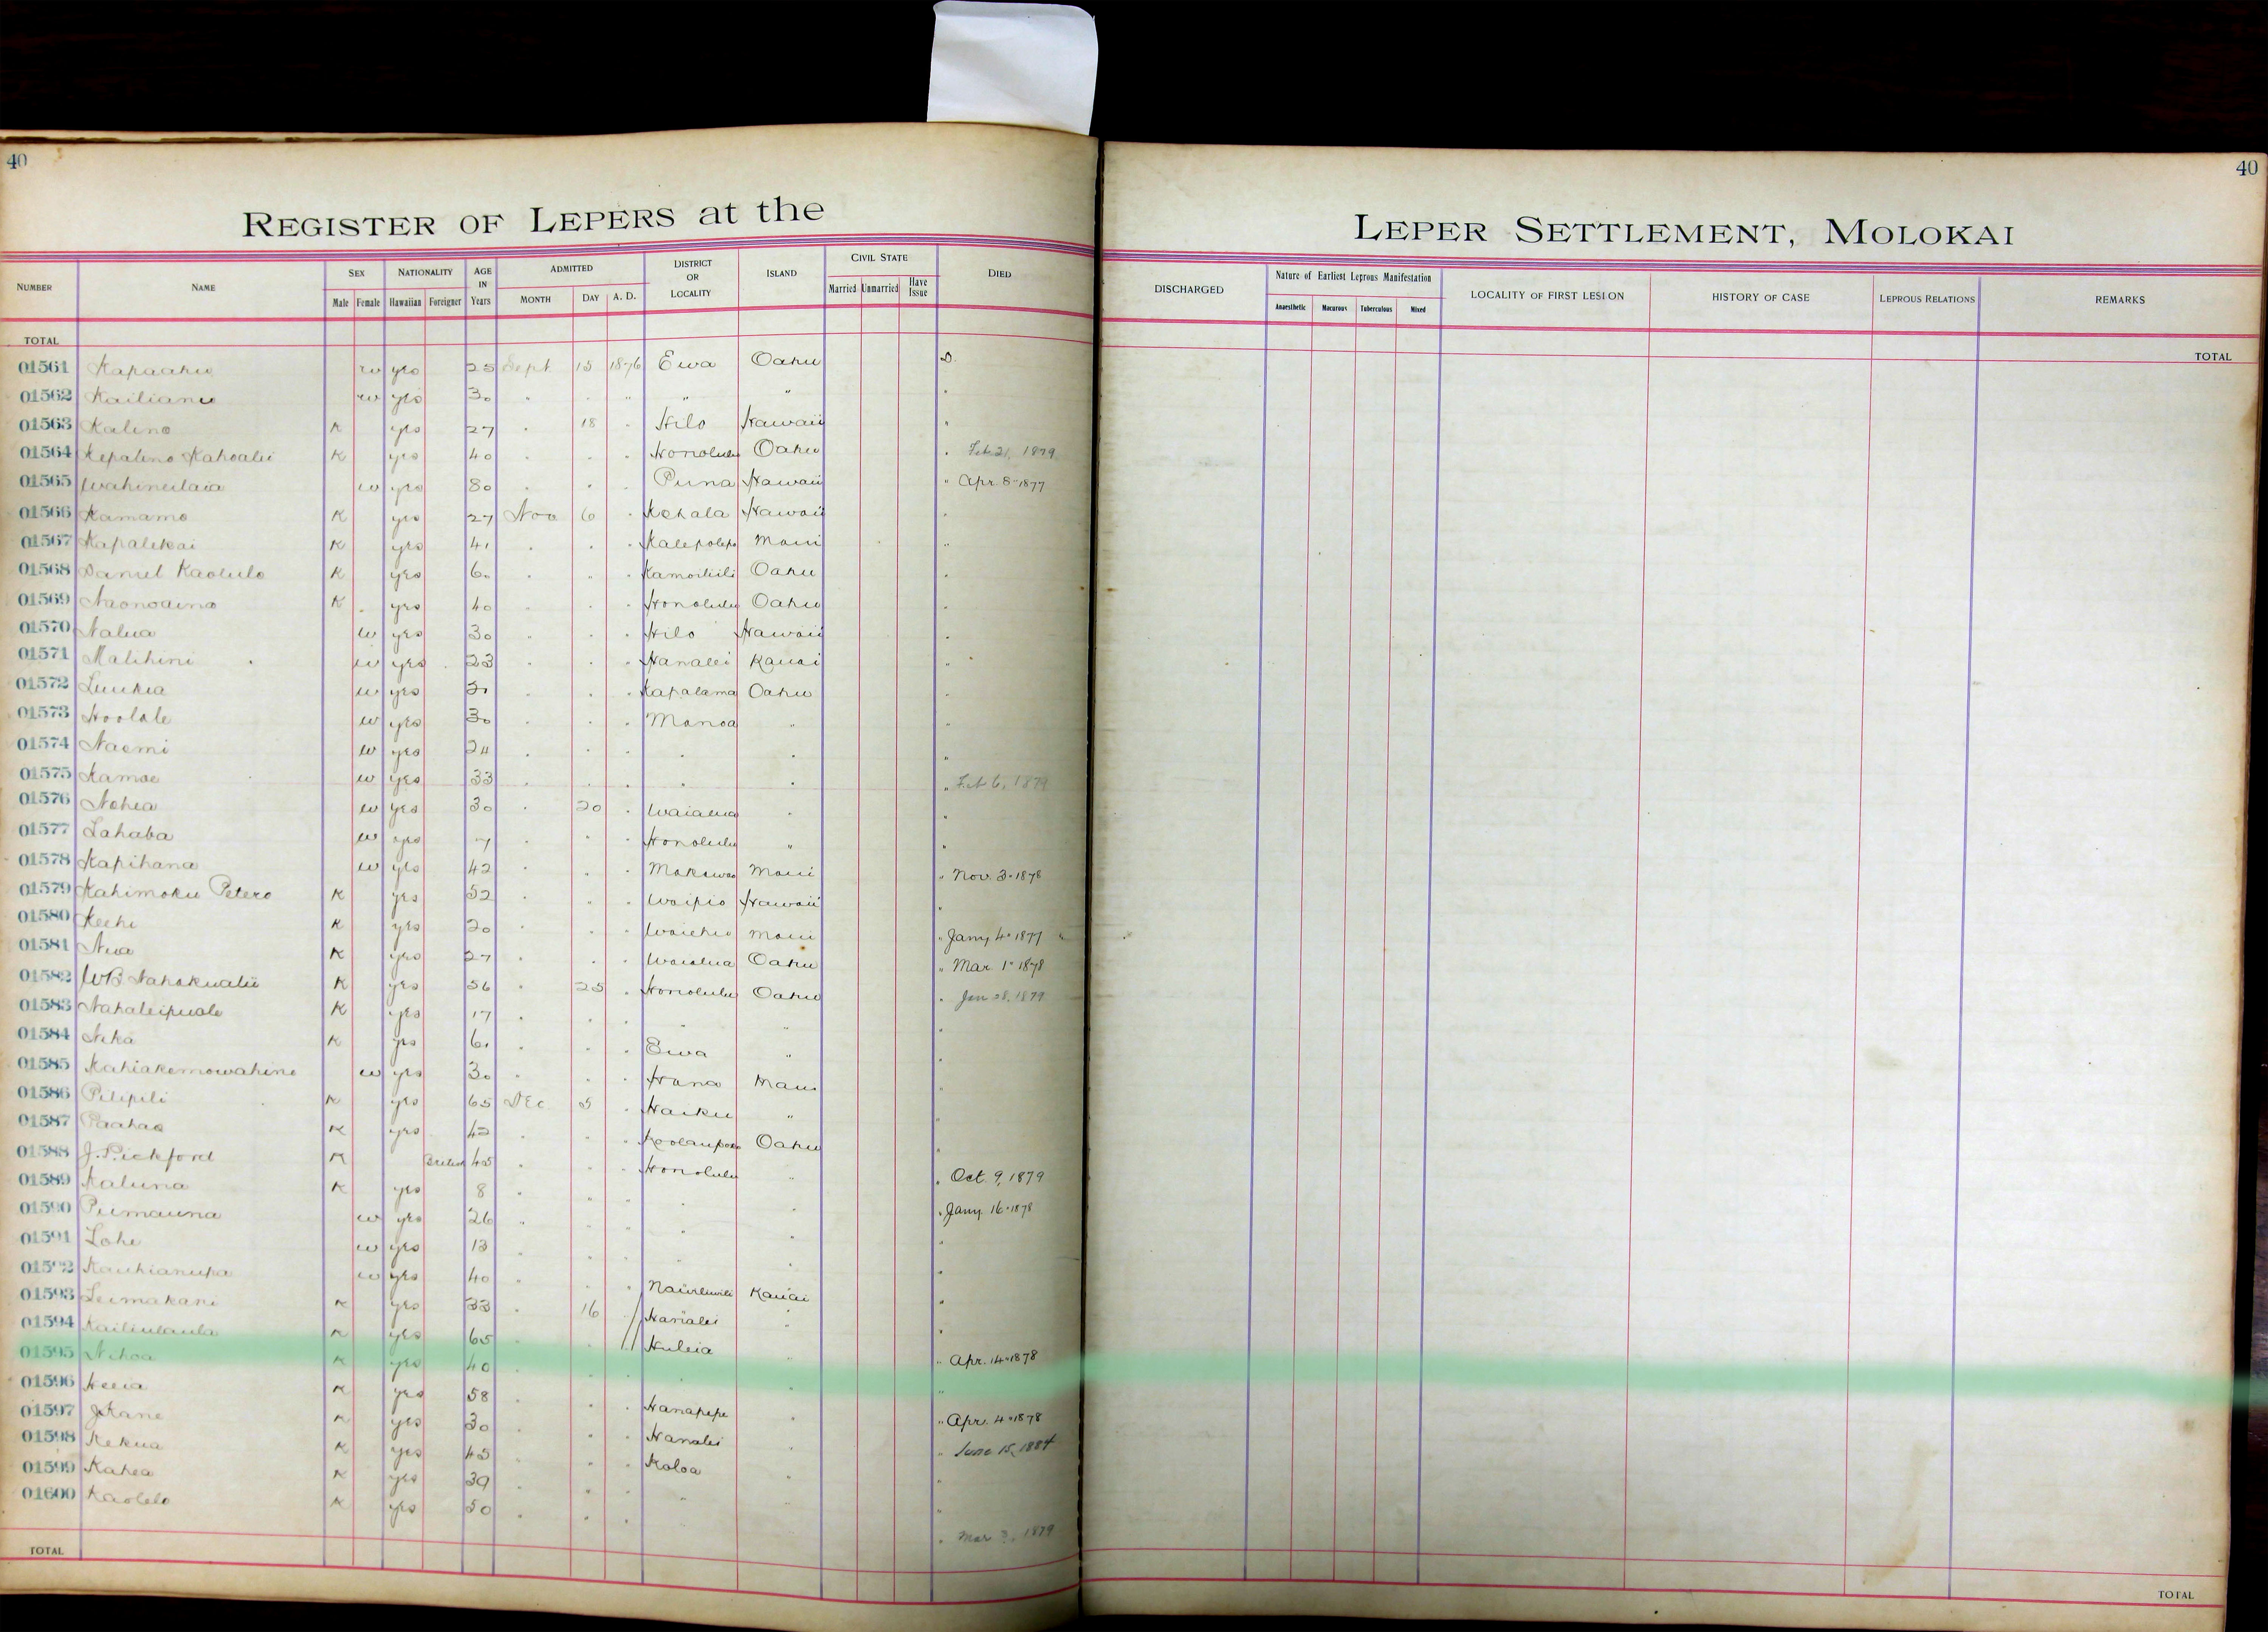 40
40
REGISTER OF LEPERS at the
LEPER SETTLEMENT, MOLOKAI
NUMBER NAME SEX Male Female NATIONALITY Hawaiian Foreigner AGE IN Years ADMITTED MONTH DAY A. D. DISTRICT OR LOCALITY ISLAND CIVIL STATE Married Unmarried Have Issue DIED
DISCHARGED Nature of Earliest Leprous Manifestation Anaesthetic Macurous Tuberculous Mixed LOCALITY OF FIRST LESION HISTORY OF CASE LEPROUS RELATIONS REMARKS
TOTAL
TOTAL
01561 Kapaahu w yes 25 Sept 15 1876 Ewa Oahu D.
01562 Kailianu w yes 30 " " " " " "
01563 Kalino K yes 27 " 18 " Hilo Hawaii "
01564 Kepalino Kahoalii K yes 40 " " " Honolulu Oahu " Feb 21, 1879
01565 Wahineilaia w yes 80 " " " Puna Hawaii " Apr. 8-1877
01566 Kamamo K yes 27 Nov 6 " Kohala Hawaii "
01567 Kapalikai K yes 41 " " " Kalepolepo Maui "
01568 Daniel Kaolulo K yes 60 " " " Kamoiliili Oahu "
01569 Naonoaina K yes 40 " " " Honolulu Oahu "
01570 Nalua w yes 30 " " " Hilo Hawaii "
01571 Malihini w yes 23 " " " Hanalei Kauai "
01572 Luukia w yes " " " Kapalama Oahu "
01573 Hoolale w yes 30 " " " Manoa " "
01574 Naemi w yes 24 " " " " " "
01575 Kamae w yes 33 " " " " " " Feb 6, 1879
01576 Nohea w yes 30 " 20 " Waialua " "
01577 Lahaba w yes 7 " " Honolulu " "
01578 Kapihana w yes 42 " " " Makawao Maui " Nov. 3-1878
01579 Kahimoku Petero K yes 52 " " " Waipio Hawaii "
01580 Keehi K yes 20 " " " Waiehu Maui " Jany 4-1877 "
01581 Niua K yes 27 " " " Waialua Oahu " Mar. 1-1878
01582 WB Nahokualii K yes 56 " 25 " Honolulu Oahu " Jan 28, 1879
01583 Nahaleipuale K yes 17 " " " " " "
01584 Nika K yes 61 " " " Ewa " "
01585 Kahiakemowahine w yes 30 " " " Hana Maui "
01586 Pilipili K yes 65 Dec 5 " Haiku " "
01587 Paahao K yes 42 " " " Koolaupoko Oahu "
01588 J. Pickford K British 45 " " " Honolulu " " Oct. 9, 1879
01589 Kaluna K yes 8 " " " " " " Jany 16-1878
01590 Piimauna w yes 26 " " " " " "
01591 Lohe w yes 13 " " " " "
01592 Kauhianupa w yes 40 " " " Nawiliwili Kauai "
01593 Leimakani K yes 33 " 16 Hanalei " "
01594 Kailiulaula K yes 65 " " Huleia " " Apr. 14-1878
01595 Nihoa K yes 40 " " " " "
01596 Heeia K yes 58 " " " Hanapepe " " Apr. 4-1878
01597 J Kane K yes 30 " " " Hanalei " " June 15, 1884
01598 Kekua K yes 45 " " " Koloa " "
01599 Kahea K yes 39 " " " " "
01600 Kaolelo K yes 50 " " " " Mar 3, 1879
TOTAL
TOTAL